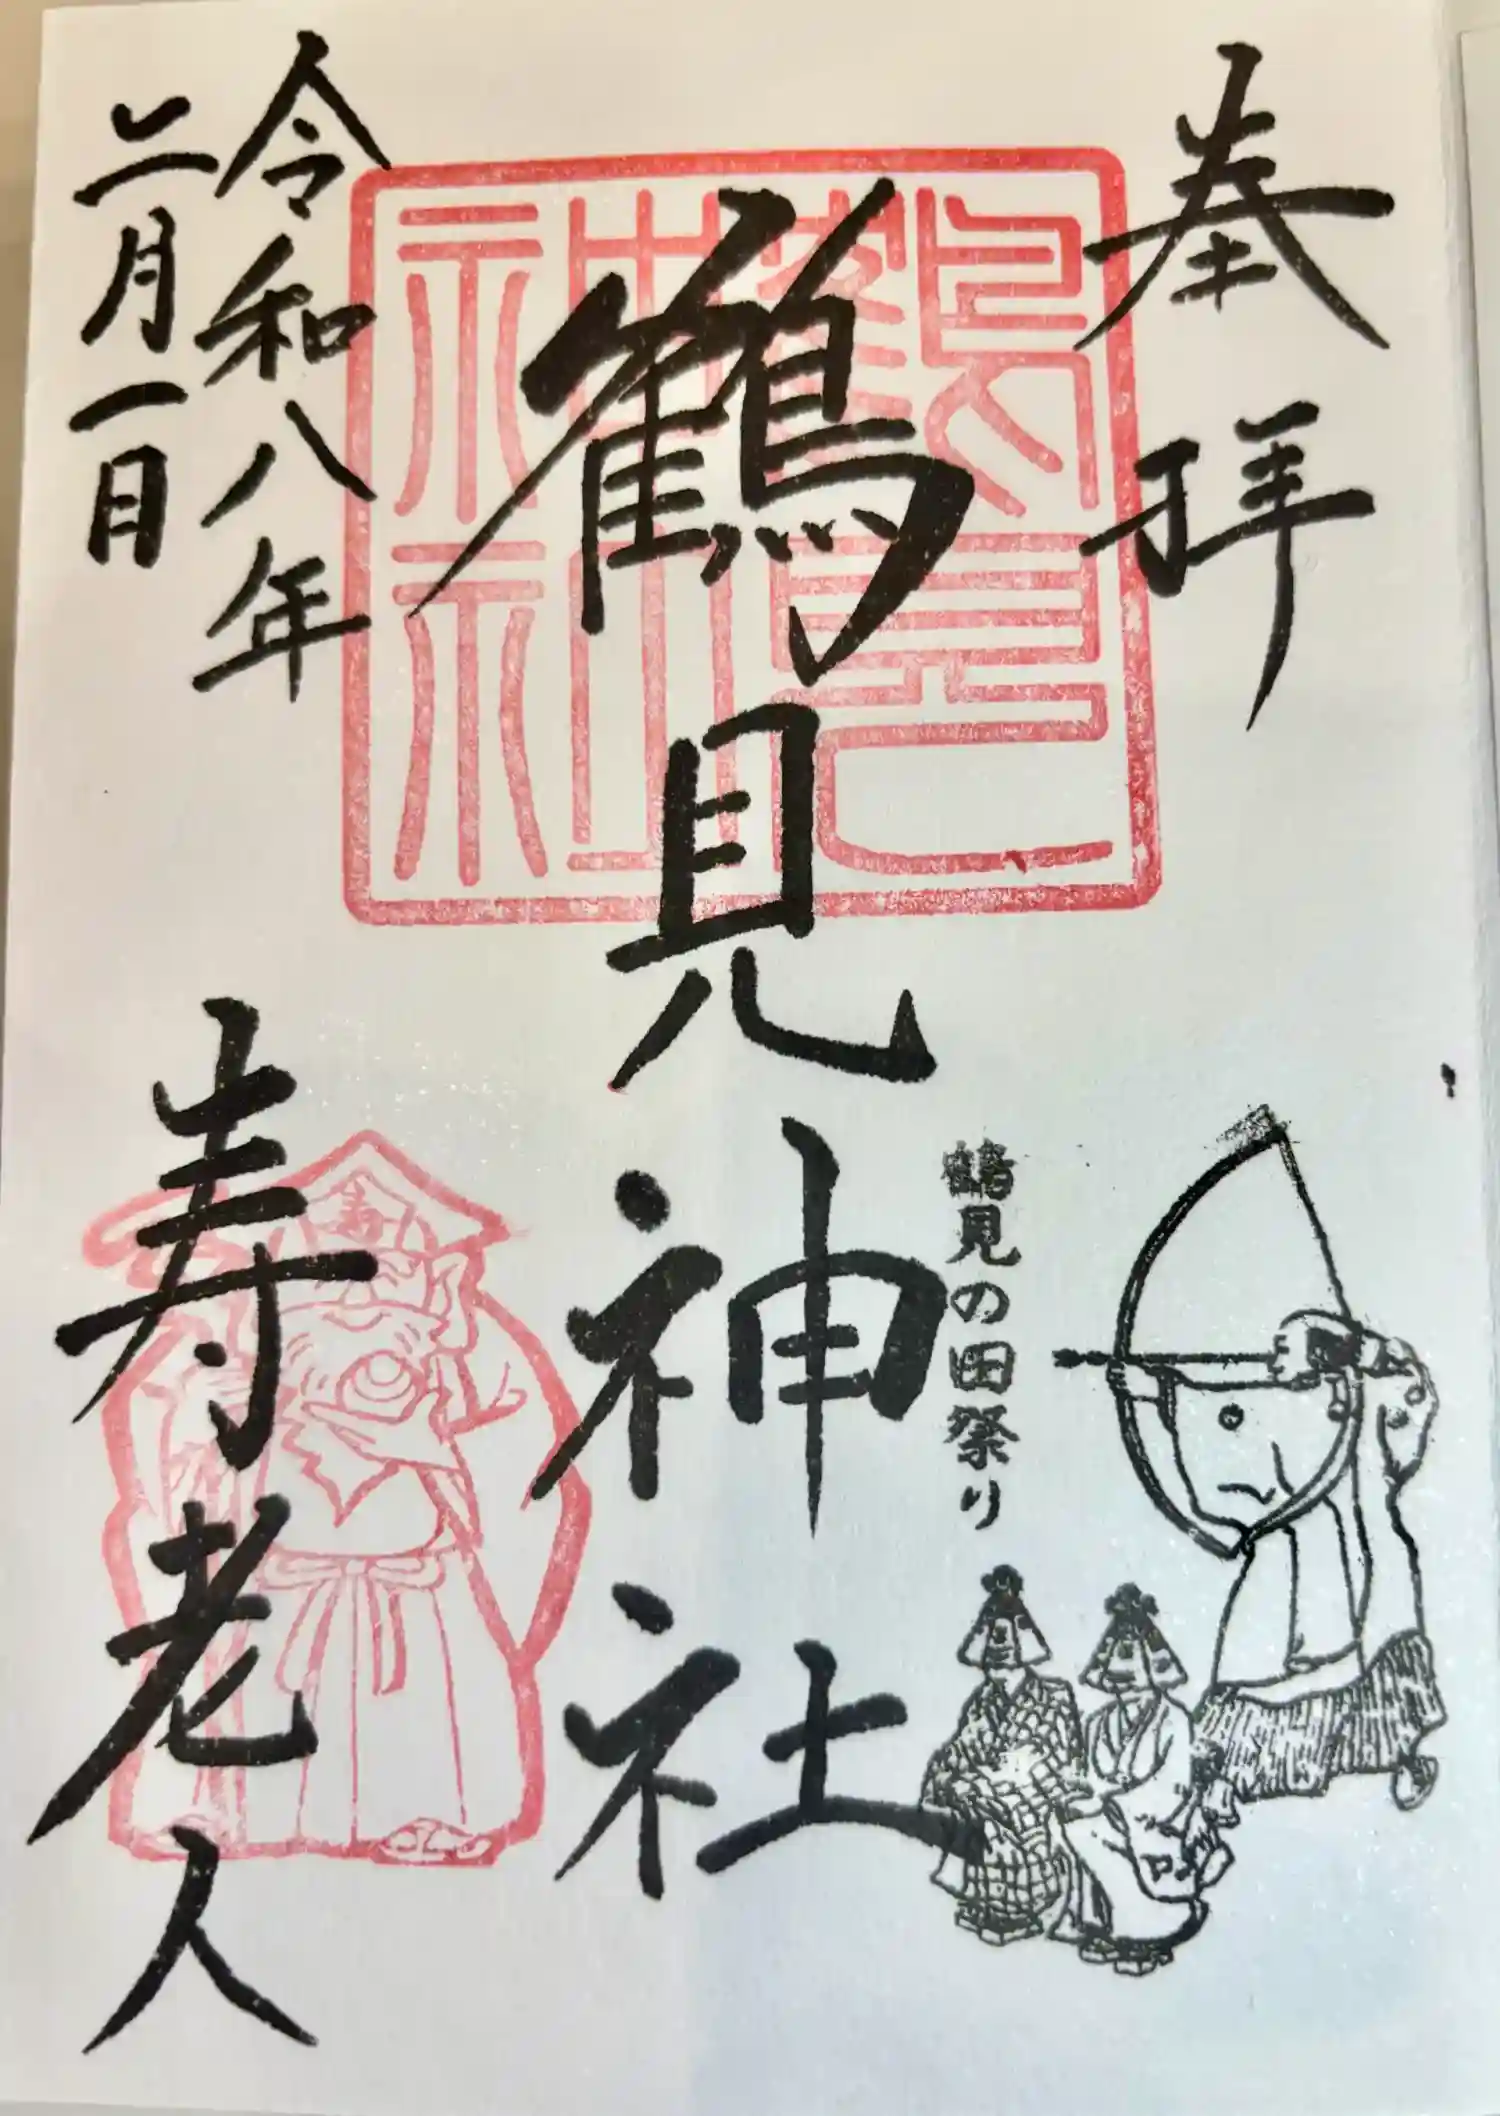 奉拝
鶴見神社
鶴見
神社
鶴見の田祭り
令和八年
二月一日
寿老人
寿